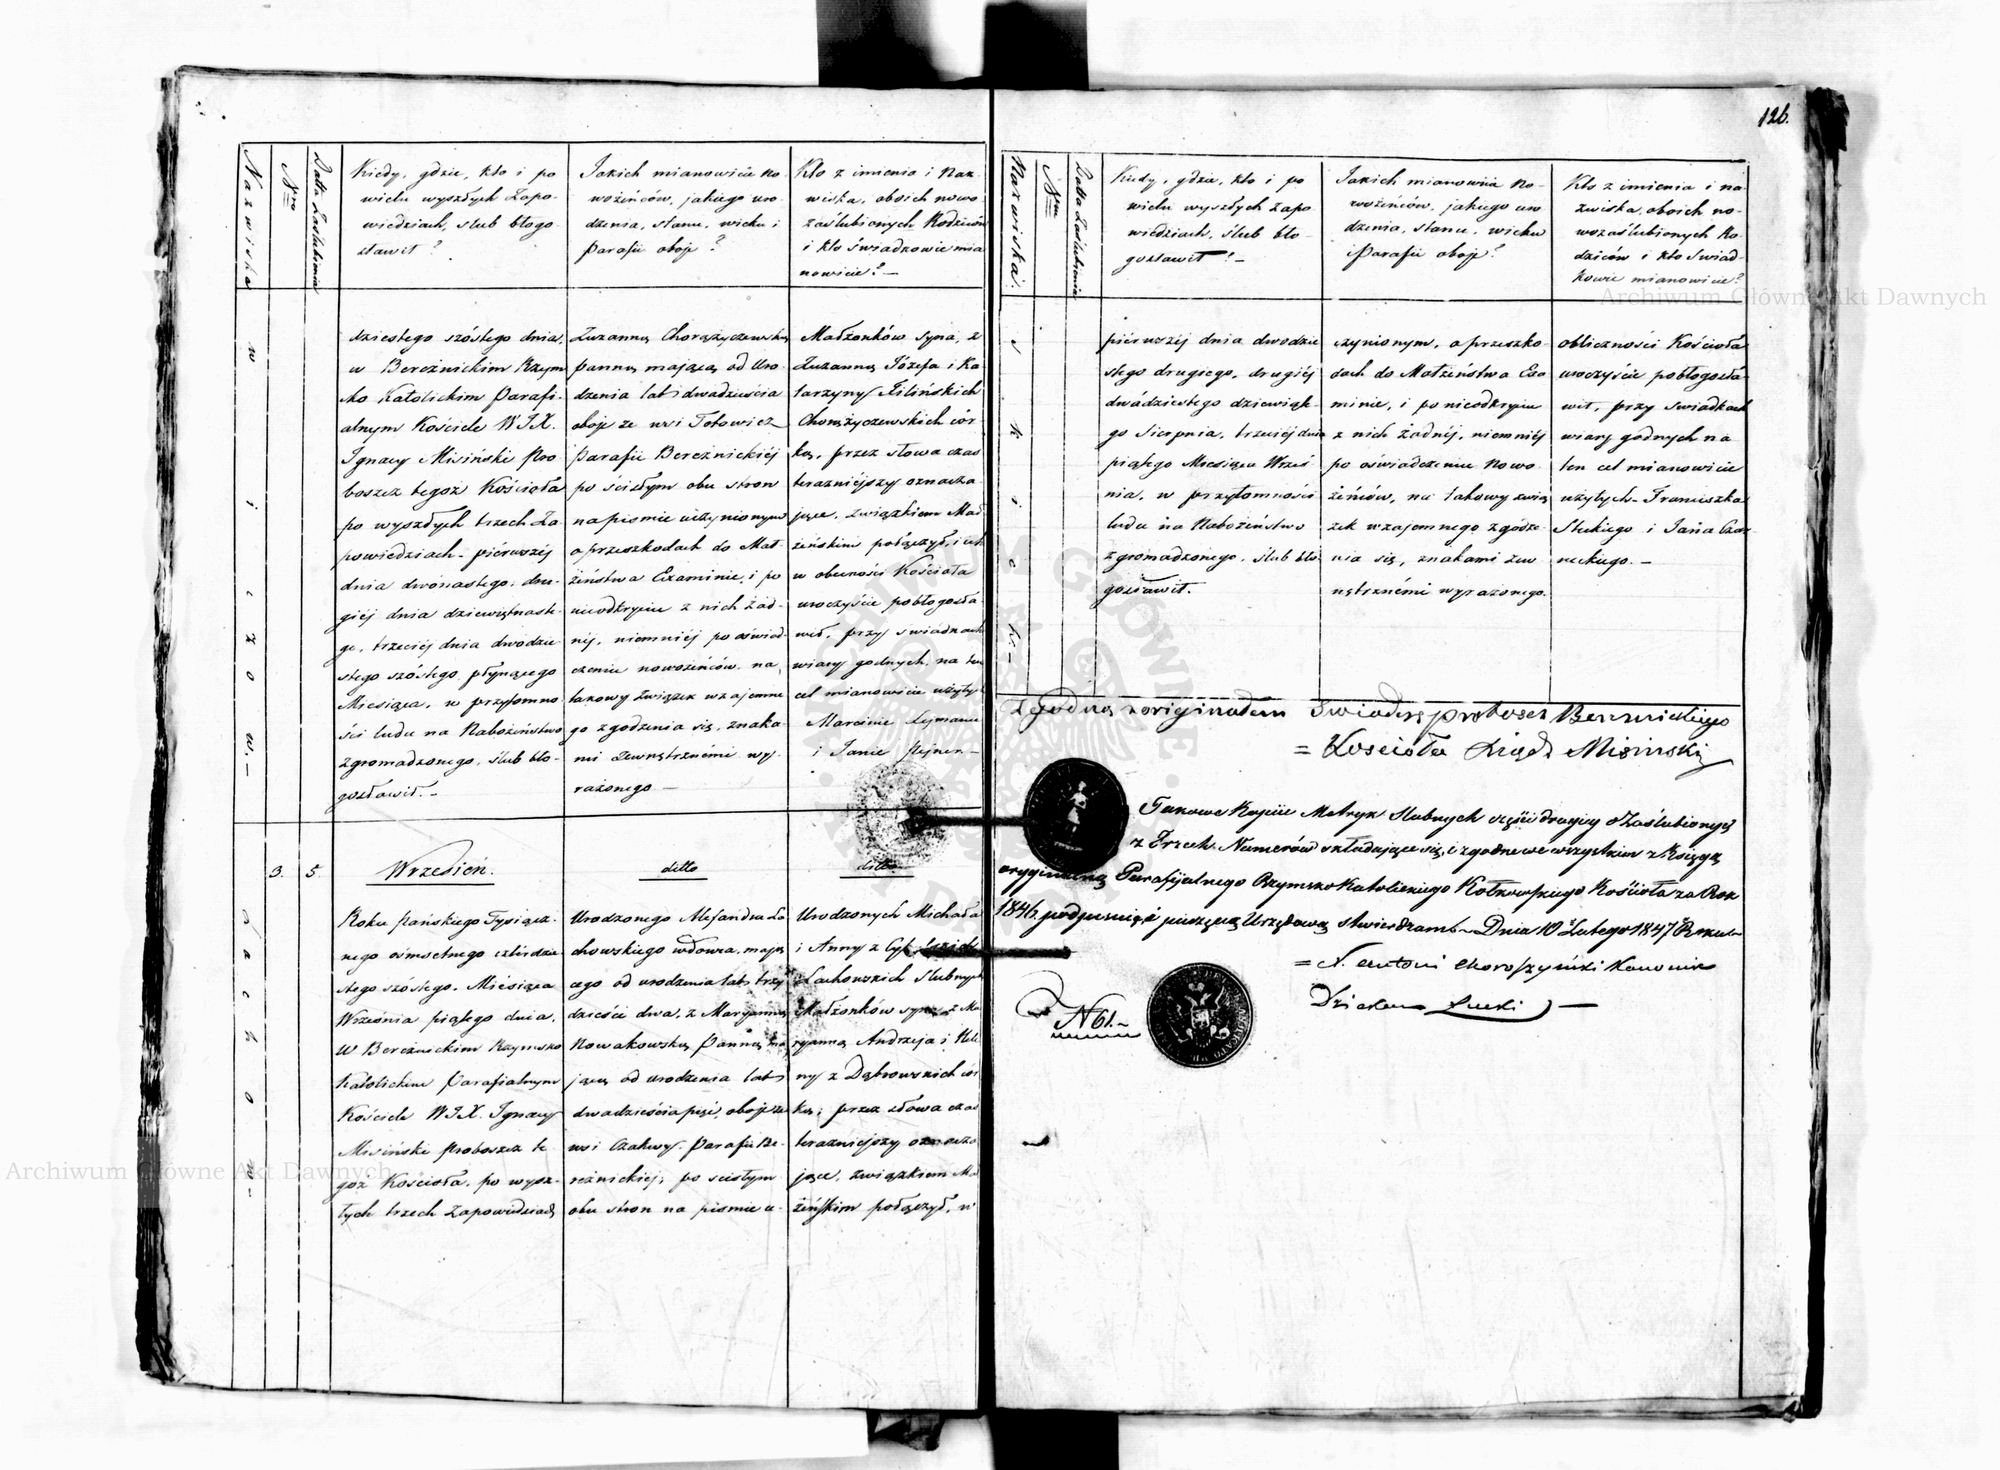 126.
Nazwiska
Nro
Datta Zaślubienia
Kiedy, gdzie, kto i po
wielu wyszłych Zapo-
wiedziach, ślub błogo-
sławił?
Jakich mianowicie No-
wożeńców, jakiego uro-
dzenia, stanu, wieku i
Parafii oboje?
Kto z imienia i Naz-
wiska, oboich nowo-
zaślubionych Rodziców
i kto świadkowie mia
nowicie? —
w i c z o w. —
dziestego szóstego dnia,
w Bereżnickim Rzym
sko Katolickim Parafi-
alnym Kościele W.J.X.
Ignacy Misiński Pro
boszcz tegoż Kościoła
po wyszłych trzech Za
powiedziach – pierwszéj
dnia dwónastego, dru-
giéj dnia dziewiętnaste-
go, trzeciéj dnia dwódzie
stego szóstego płynącego
Miesiąca, w przytomno
ści ludu na Nabożeństwo
zgromadzonego, ślub bło-
gosławił. –
Zuzanną Chorążyczewską
panną mającą od Uro-
dzenia lat dwadzieścia
oboje ze wsi
Parafii Bereznickiéj
po ścisłym obu stron
na piśmie uczynionym
o przeszkodach do Mał-
żeństwa Examinie, i po
nieodkryciu z nich żad-
néj, niemniéj po oświad-
czeniu nowożeńców, na
takowy związek wzajemne
go zgodzenia się, znaka
mi zewnętrznémi wy-
rażonego —
Małżonków syna, z
Zuzanną Józefa i Ka
tarzyny Zilińskich
Chorążyczewskich cór
ką, przez słowa czas
teraźniéjszy oznacza
jące, związkiem Mał
żeńskim połączył, i ich
w obecności Kościoła
uroczyście pobłogosła
wił, przy świadkach
wiary godnych, na ten
cel mianowicie użytych
Marcinie Lejmanu
i Janie
3.
5.
Wrzesień.
ditto
ditto
Roku Pańskiego Tysiącz-
nego ośmsetnego czterdzie
stego szóstego, Miesiąca
Września piątego dnia,
w Bereżnickim Rzymsko
Katolickim Parafialnym
Kościele W.J.X. Ignacy
Misiński Proboszcz te-
goż Kościoła, po wysz-
łych trzech Zapowiedziach
Urodzonego Alexandra La
chowskiego wdowca, mają
cego od urodzenia lat trzy
dzieści dwa, z Maryanną
Nowakowską Panną ma
jącą od urodzenia lat
dwadzieścia pięć, oboje ze
wsi Parafii Be-
reżnickiéj, po ścisłym
obu stron na piśmie u-
Urodzonych Michała
i Anny z
Lachowskich Ślubnych
Małżonków syna, z Ma
ryanną Andrzeja i Hele
ny z Dąbrowskich cór
ką, przez słowa czas
teraźniejszy oznacza
jące, związkiem Mał
żeńskim połączył, w
Nazwiska
Nro
Datta Zaślubienia
Kiedy, gdzie, kto i po
wielu wyszłych Zapo
wiedziach, ślub bło-
gosławił? –
Jakich mianowicie No-
wożeńców, jakiego uro
dzenia, stanu, wieku
i Parafii oboje?
Kto z imienia i na-
zwiska, oboich no-
wozaślubionych Ro-
dziców i kto Świad-
kowie mianowicie?
pierwszéj dnia dwodzie
stego drugiego, drugiéj
dwódziestego dziewiąte-
go Sierpnia, trzeciéj dnia
piątego Miesiąca Wrześ
nia, w przytomności
ludu na Nabożeństwo
zgromadzonego, ślub bło
gosławił.
czynionym, o przeszko-
dach do Małżeństwa Exa
minie, i po nieodkryciu
z nich żadnéj, niemniéj
po oświadczeniu Nowo-
żeńców, na takowy zwią
zek wzajemnego zgodze-
nia się, znakami zew
nętrznémi wyrażonego.
obliczności Kościoła
uroczyście pobłogosła-
wił, przy świadkach
wiary godnych na
ten cel mianowicie
użytych – Franciszka
Steckiego i Jana Czar
neckiego. –
Zgodną z originałem Świadczę proboszcz Bereznickiego
= Kościoła Xiądz Misiński
Takowe Kopije Metryk Ślubnych części drugiey o Zaślubionych
z Trzech Numerów składające się, i zgodne we wszystkim z Księgą
oryginalną Parafijalnego Rzymsko Katolickiego Kościoła za Rok
1846. podpisem i pieczęcią Urzędową stwierdzam – Dnia 10 Lutego 1847 Roku –
= X. Antoni Kanonik
Dziekan Łucki
N 61. –
Archiwum Główne Akt Dawnych
Archiwum Główne Akt Dawnych